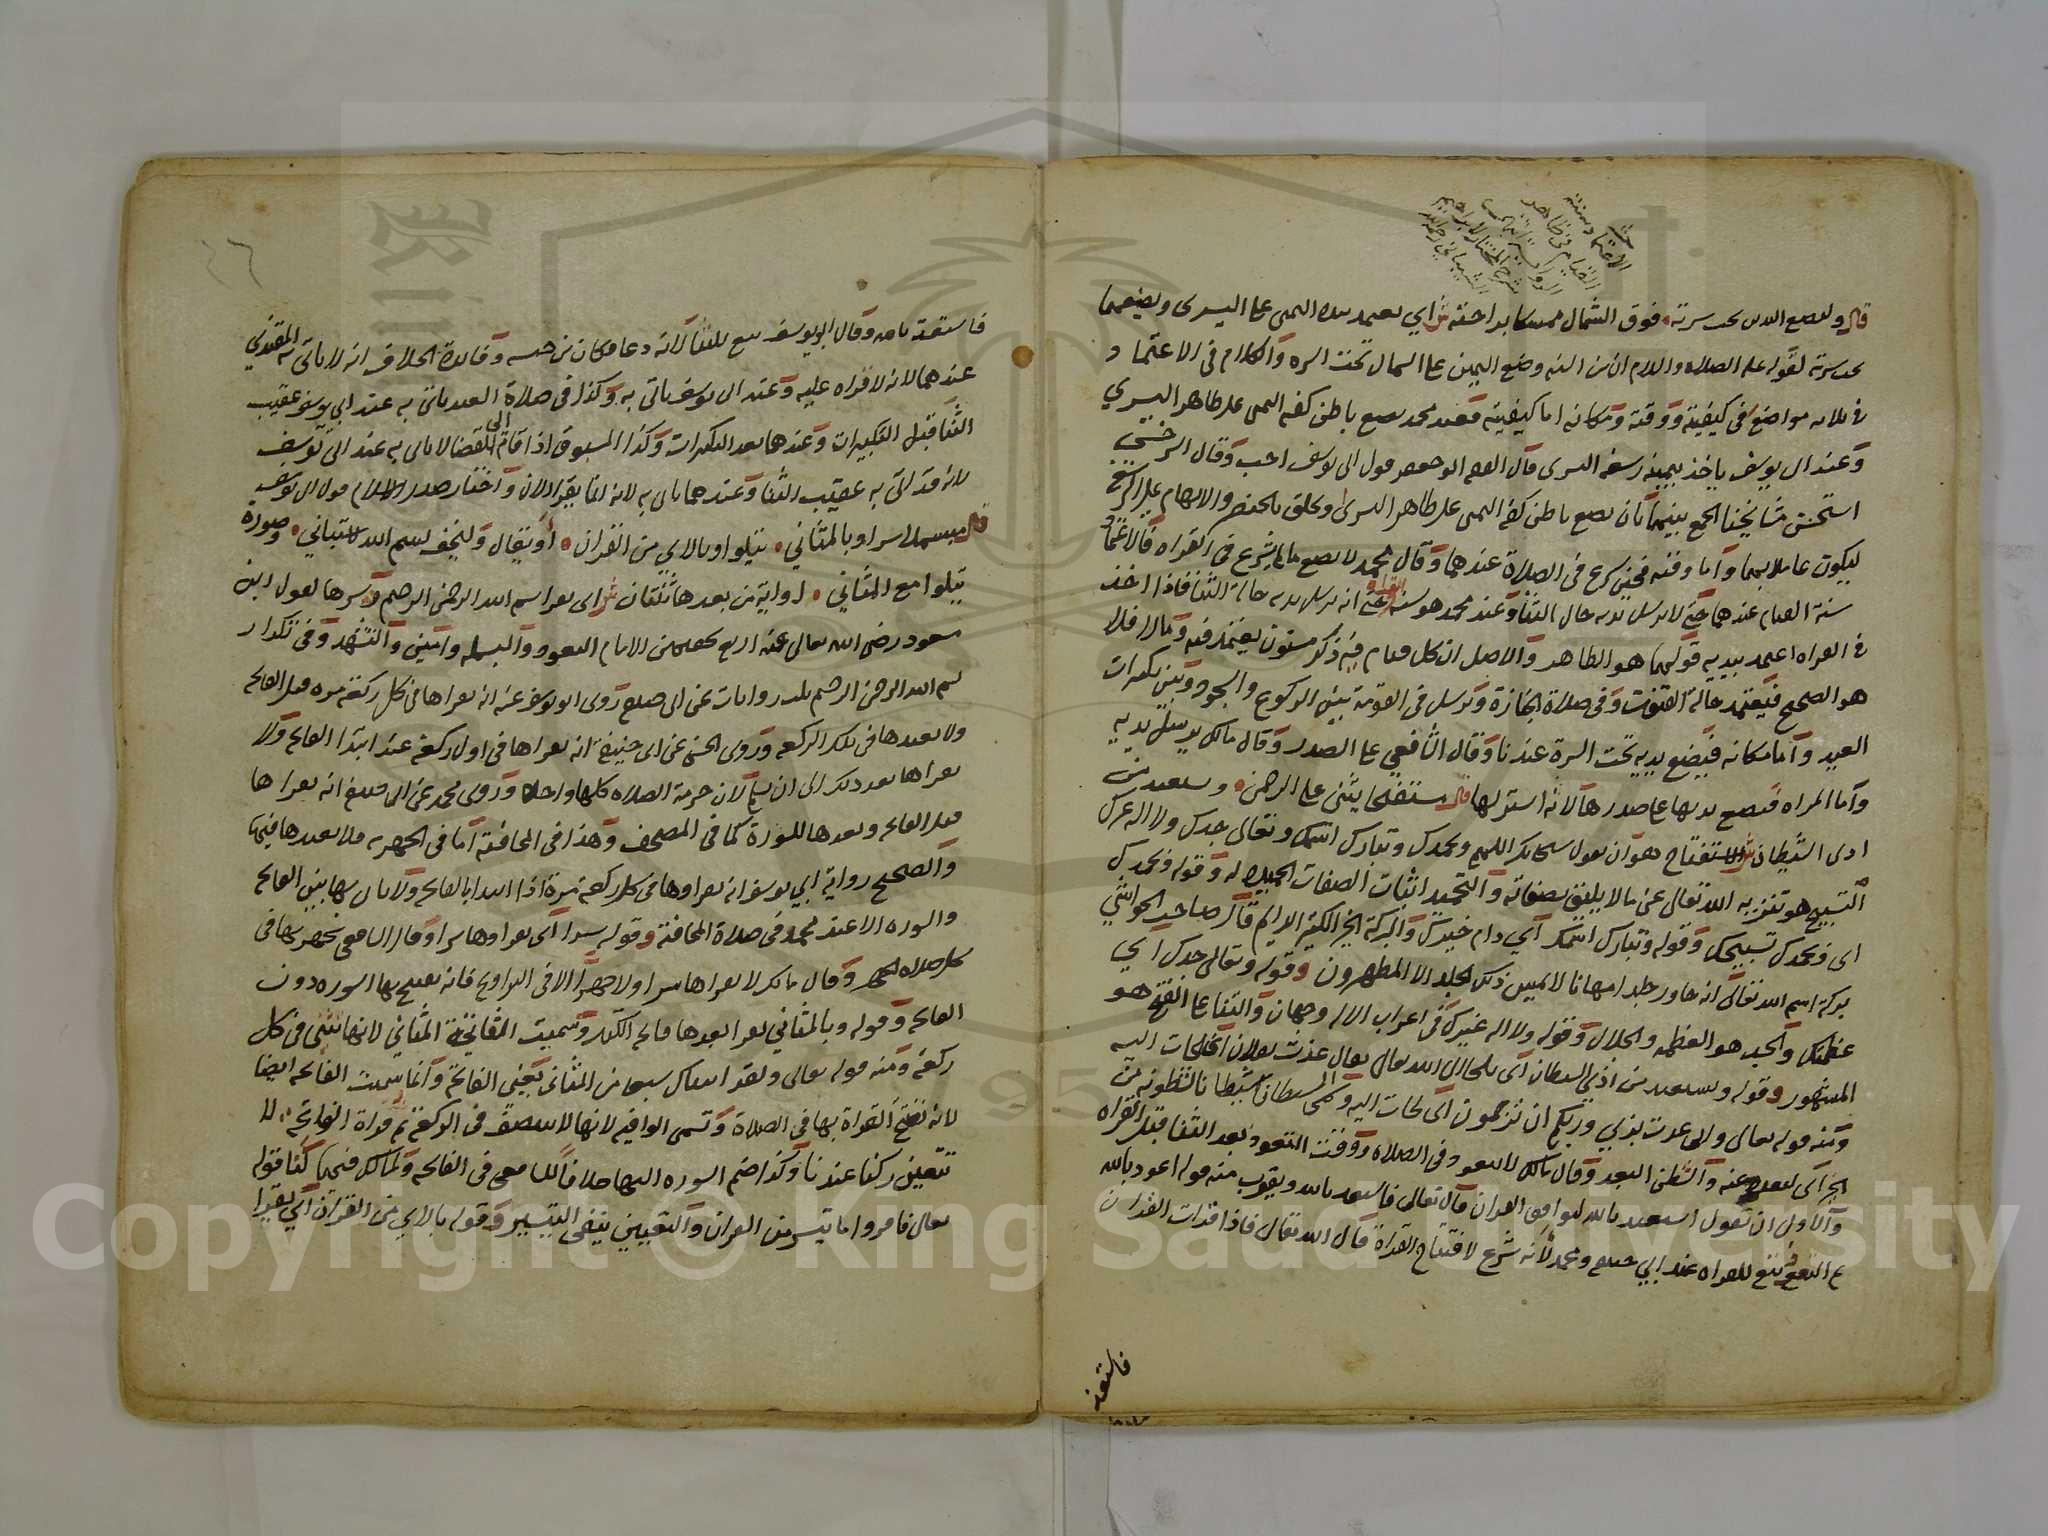 الاعتماد سنة
القيام في ظاهر
قال وليضع اليدين تحت سرته فوق الشمال ممسكا براحته ش اي يعتمد بيده اليمنى على اليسرى ويضعهما
تحت سرته لقوله عليه الصلاة والسلام ان من السنة وضع اليمين على الشمال تحت السرة والكلام في الاعتماد
في ثلاثة مواضع في كيفيته ووقته ومكانه اما كيفيته فعند محمد يضع باطن كفه اليمنى على ظاهر اليسرى
وعند ابي يوسف ياخذ بيمينه رسغه اليسرى قال الفقيه ابو جعفر قول ابي يوسف احب وقال السرخسي
استحسن مشايخنا الجمع بينهما بان يضع باطن كفه اليمنى على ظاهر اليسرى ويحلق بالخنصر والابهام على الرسغ
ليكون عاملا بهما واما وقته فحين شرع في الصلاة عندهما وقال محمد لا يضع مالم يشرع في القراة فالاعتماد
سنة القيام عندهما حتى لا يرسل يديه حال الثنا وعند محمد هو سنة القراة حتى انه يرسل يديه حالة الثنا فاذا اخذ
في القراه اعتمد بيديه قولهما هو الظاهر والاصل ان كل قيام فيه ذكر مسنون يعتمد فيه ومالا فلا
هو الصحيح فيعتمد حالة القنوت وفي صلاة الجنازة ويرسل في القومة بين الركوع والسجود وبين تكبيرات
العيد واما مكانه فيضع يديه تحت السرة عندنا وقال الشافعي على الصدر وقال مالك يرسل يديه
واما المراه فتضع يديها على صدرها لانه استر لها قال مستفتحا يثني على الرحمن ويستعيذ من
اذى الشيطان ش الاستفتاح هو ان يقول سبحانك اللهم وبحمدك وتبارك اسمك وتعالى جدك ولا اله غيرك
التسبيح هو تنزيه الله تعالى عن مالا يليق بصفاته والتحميد اثبات الصفات الحميده له وقوله وبحمدك
اي وبحمدك تسبيحك وقوله وتبارك اسمك اي دام خيرك والبركة الخير الكثير الدايم قال صاحب الحواشي
بركة اسم الله تعالى انه جاور جلدا مهانا لا يمس ذلك الجلد الا المطهرون وقوله وتعالى جدك اي
عظمتك والجد هو العظمه والجلال وقوله ولا اله غيرك في اعراب الاله وجهان والبنا على الفتح هو
المشهور وقوله ويستعيذ من اذى الشيطان اي يلتجا الى الله تعالى يقال عذت بفلان اي لجات اليه
ومنه قوله تعالى واني عذت بربي وربكم ان ترجمون اي لجات اليه وسمي الشيطان شيطانا لشطونه عن
الخير اي لبعده عنه والشطن البعد وقال مالك لا يتعوذ في الصلاه ووقت التعوذ بعد الثنا قبل القراه
والاولى ان يقول استعيذ بالله ليوافق القران قال تعالى فاستعذ بالله ويقرب منه قوله اعوذ بالله
ثم التعوذ تبع للقراه عند ابي حنيفة ومحمد لانه شرع لافتتاح القراة قال الله تعالى فاذا قرات القران
فاستعذ
فاستعذ بالله وقال ابو يوسف تبع للثنا لانه دعا فكان من جنسه وفائدة الخلاف انه لا ياتي به المقتدي
عندهما لانه لا قراه عليه وعند ابي يوسف ياتي به وكذا في صلاة العيد ياتي به عند ابي يوسف عقيب
الثنا قبل التكبيرات وعندهما بعد التكبيرات وكذا المسبوق اذا قام الى القضا لا ياتي به عند ابي يوسف
لانه قد اتى به عقيب الثنا وعندهما ياتي به لانه انما يقرا الان واختار صدر الاسلام قول ابي يوسف
قال مبسملا سرا وبالمثاني يتلوا وبالاي من القران او يقال وليخف بسم الله للتباني وصورة
يتلوا مع المثاني او اية من بعدها ثنتان ش اي يقرا بسم الله الرحمن الرحيم ويسرها لقول ابن
مسعود رضى الله تعالى عنه اربع يخفيهن الامام التعوذ والبسمله وامين والتشهد وفي تكرار
بسم الله الرحمن الرحيم ثلث روايات عن ابي حنيفة روى ابو يوسف عنه انه يقراها في كل ركعة مره قبل الفاتحه
ولا يعيدها في تلك الركعه وروى الحسن عن ابي حنيفة انه يقراها في اول ركعة عند ابتدا الفاتحه ولا
يقراها بعد ذلك الى ان يسلم لان حرمة الصلاه كلها واحده وروى محمد عن ابي حنيفة انه يقراها
قبل الفاتحه وبعدها للسورة كما في المصحف وهذا في المخافتة اما في الجهريه فلا يعيدها فيها
والصحيح رواية ابي يوسف انه يقراوها في كل ركعة مرة اذا ابتدا بالفاتحه ولا ياتي بها بين الفاتحه
والسوره الا عند محمد في صلاة المخافتة وقوله سرا اي يقراوها سرا وقال الشافعي يجهر بها في
كل صلاه الجهر وقال مالك لا يقراها سرا ولا جهرا الا في التراويح فانه يفتتح بها السوره دون
الفاتحه وقوله وبالمثاني يقرا بعدها فاتحه الكتاب وسميت الفاتحة المثاني لانها تثنى في كل
ركعة ومنه قوله تعالى ولقد اتيناك سبعا من المثاني يعني الفاتحة وانما سميت الفاتحه ايضا
لانه تفتتح القراة بها في الصلاة وتسمى الوافيه لانها لا تنصف في الركعة ثم قراة الفاتحه لا
تتعين ركنا عندنا وكذا ضم السوره اليها خلافا للشافعي في الفاتحه ولمالك فيهما لنا قوله
تعالى فاقروا ما تيسر من القران والتعيين ينفي التيسير وقوله بالاي من القران اي يقرا